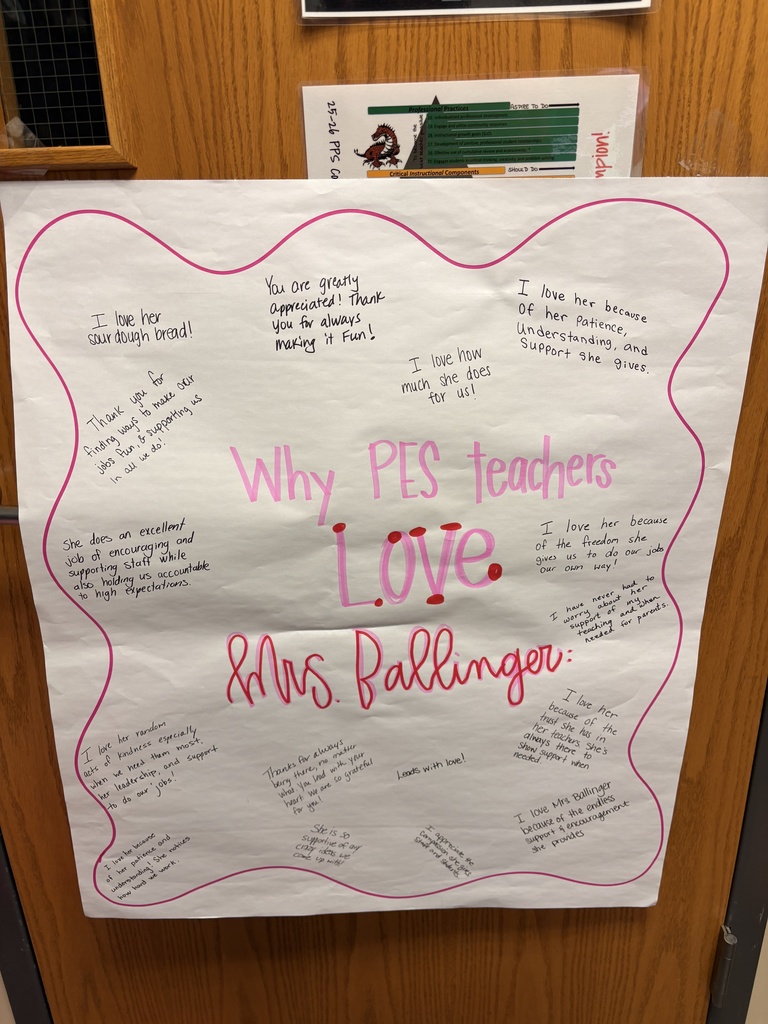 25-26 PPS Co
Professional Practices
ASPIRE TO DO
Critical Instructional Components
SHOULD DO
I love her
sourdough bread!
You are greatly
appreciated! Thank
you for always
making it fun!
I love her because
of her patience,
Understanding, and
Support she gives.
I love how
much she does
for us!
Thank you for
finding ways to make our
jobs fun, & supporting us
in all we do!
Why PES teachers
Love
Mrs. Ballinger:
She does an excellent
job of encouraging and
supporting staff while
also holding us accountable
to high expectations.
I love her because
of the freedom she
gives us to do our jobs
our own way!
I have never had to
worry about her
support of my
teaching and when
needed for parents.
I love her random
acts of kindness especially
when we need them most,
her leadership, and support
to do our jobs!
Thanks for always
being there, no matter
what. You lead with your
heart. We are so grateful
for you!
Leads with love!
I love her
because of the
trust she has in
her teachers. She's
always there to
show support when
needed
I love Mrs Ballinger
because of the endless
support & encouragement
she provides
I love her because
of her patience and
understanding! She notices
how hard we work.
She is so
supportive of any
crazy ideas we
come up with!
I appreciate the
compassion she gives
staff and students.